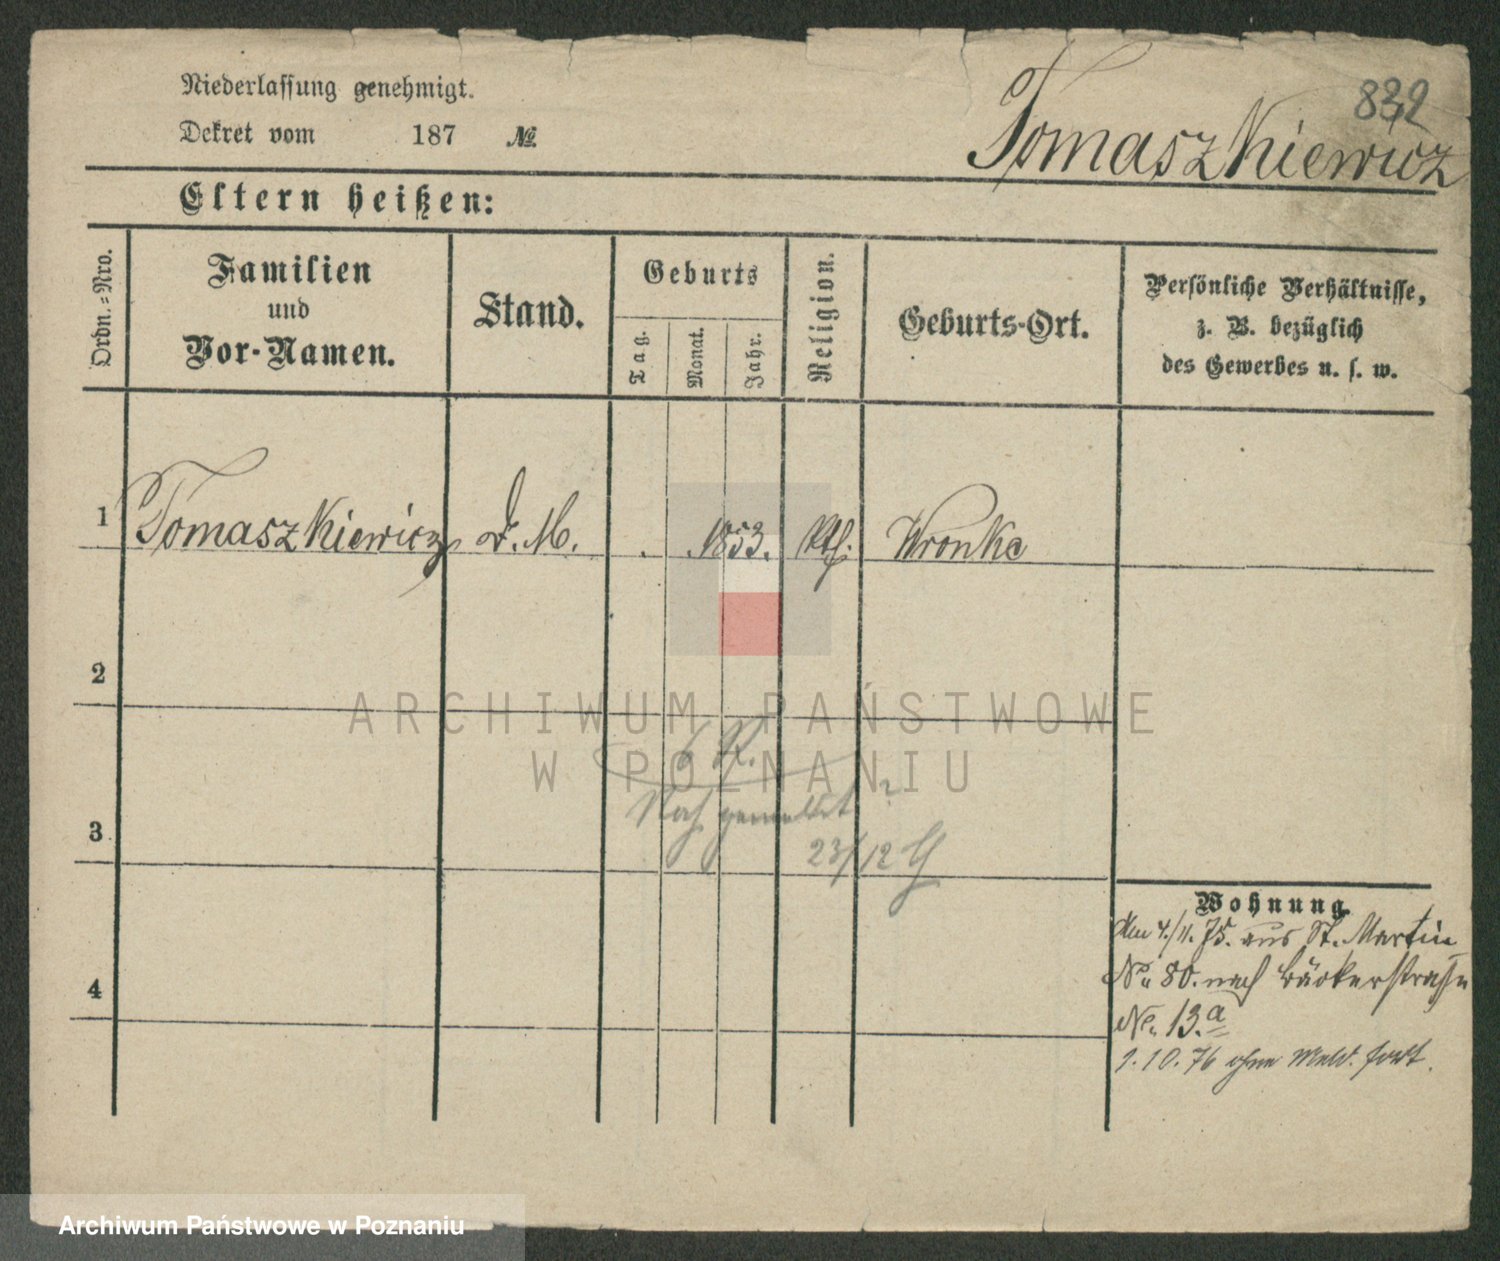 Niederlassung genehmigt.
Dekret vom 187 №
832
Tomaszkiewicz
Eltern heißen:
Ordn.-Nro.
Familien
und
Vor-Namen.
Stand.
Geburts
Tag.
Monat.
Jahr.
Religion.
Geburts-Ort.
Persönliche Verhältnisse,
z. B. bezüglich
des Gewerbes u. s. w.
1 Tomaszkiewicz D. M. . . 1853. Kth. Wronke
2
ARCHIWUM PAŃSTWOWE
W POZNANIU
Noch gemeldet ?
3
23/12
Wohnung.
den 4./11. 75. aus St. Martin
No 80. nach Bäckerstraße
No. 13.a
4
1.10.76 ohne Meld. fort.
Archiwum Państwowe w Poznaniu